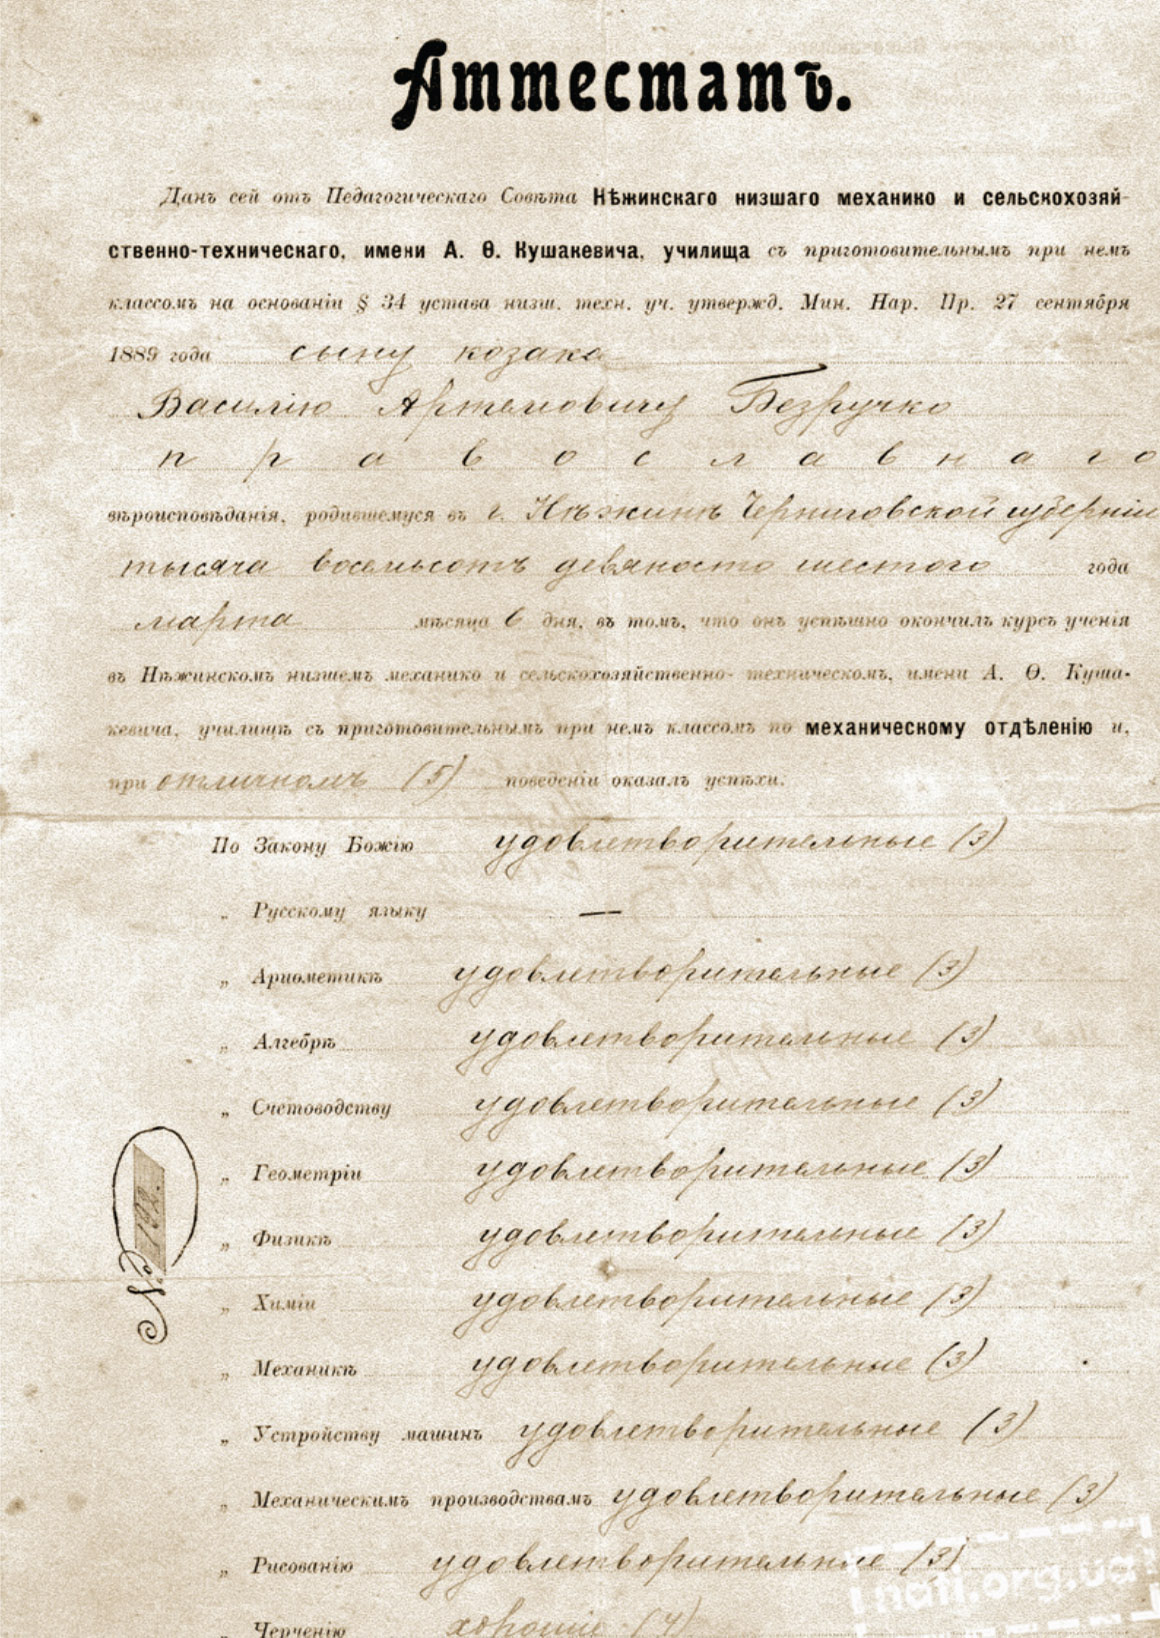 Аттестатъ.
Данъ сей отъ Педагогическаго Совѣта Нѣжинскаго низшаго механико и сельскохозяй-
ственно-техническаго, имени А. Ѳ. Кушакевича, училища съ приготовительнымъ при немъ
классомъ на основаніи § 34 устава низш. техн. уч. утвержд. Мин. Нар. Пр. 27 сентября
1889 года сыну козака
Василію Артемовичу Безручко
православнаго
вѣроисповѣданія, родившемуся въ г. Нѣжинѣ Черниговской губерніи
тысяча восемьсотъ девяносто шестого года
марта мѣсяца 6 дня, въ томъ, что онъ успѣшно окончилъ курсъ ученія
въ Нѣжинскомъ низшемъ механико и сельскохозяйственно- техническомъ, имени А. Ѳ. Куша-
кевича, училищѣ съ приготовительнымъ при немъ классомъ по механическому отдѣленію и,
при отличномъ (5) поведеніи оказалъ успѣхи.
По Закону Божію удовлетворительные (3)
„ Русскому языку —
„ Ариѳметикѣ удовлетворительные (3)
„ Алгебрѣ удовлетворительные (3)
„ Счетоводству удовлетворительные (3)
„ Геометріи удовлетворительные (3)
„ Физикѣ удовлетворительные (3)
„ Химіи удовлетворительные (3)
„ Механикѣ удовлетворительные (3)
„ Устройству машинъ удовлетворительные (3)
„ Механическимъ производствамъ удовлетворительные (3)
„ Рисованію удовлетворительные (3)
„ Черченію хорошіе (4)
№ 192.
nati.org.ua